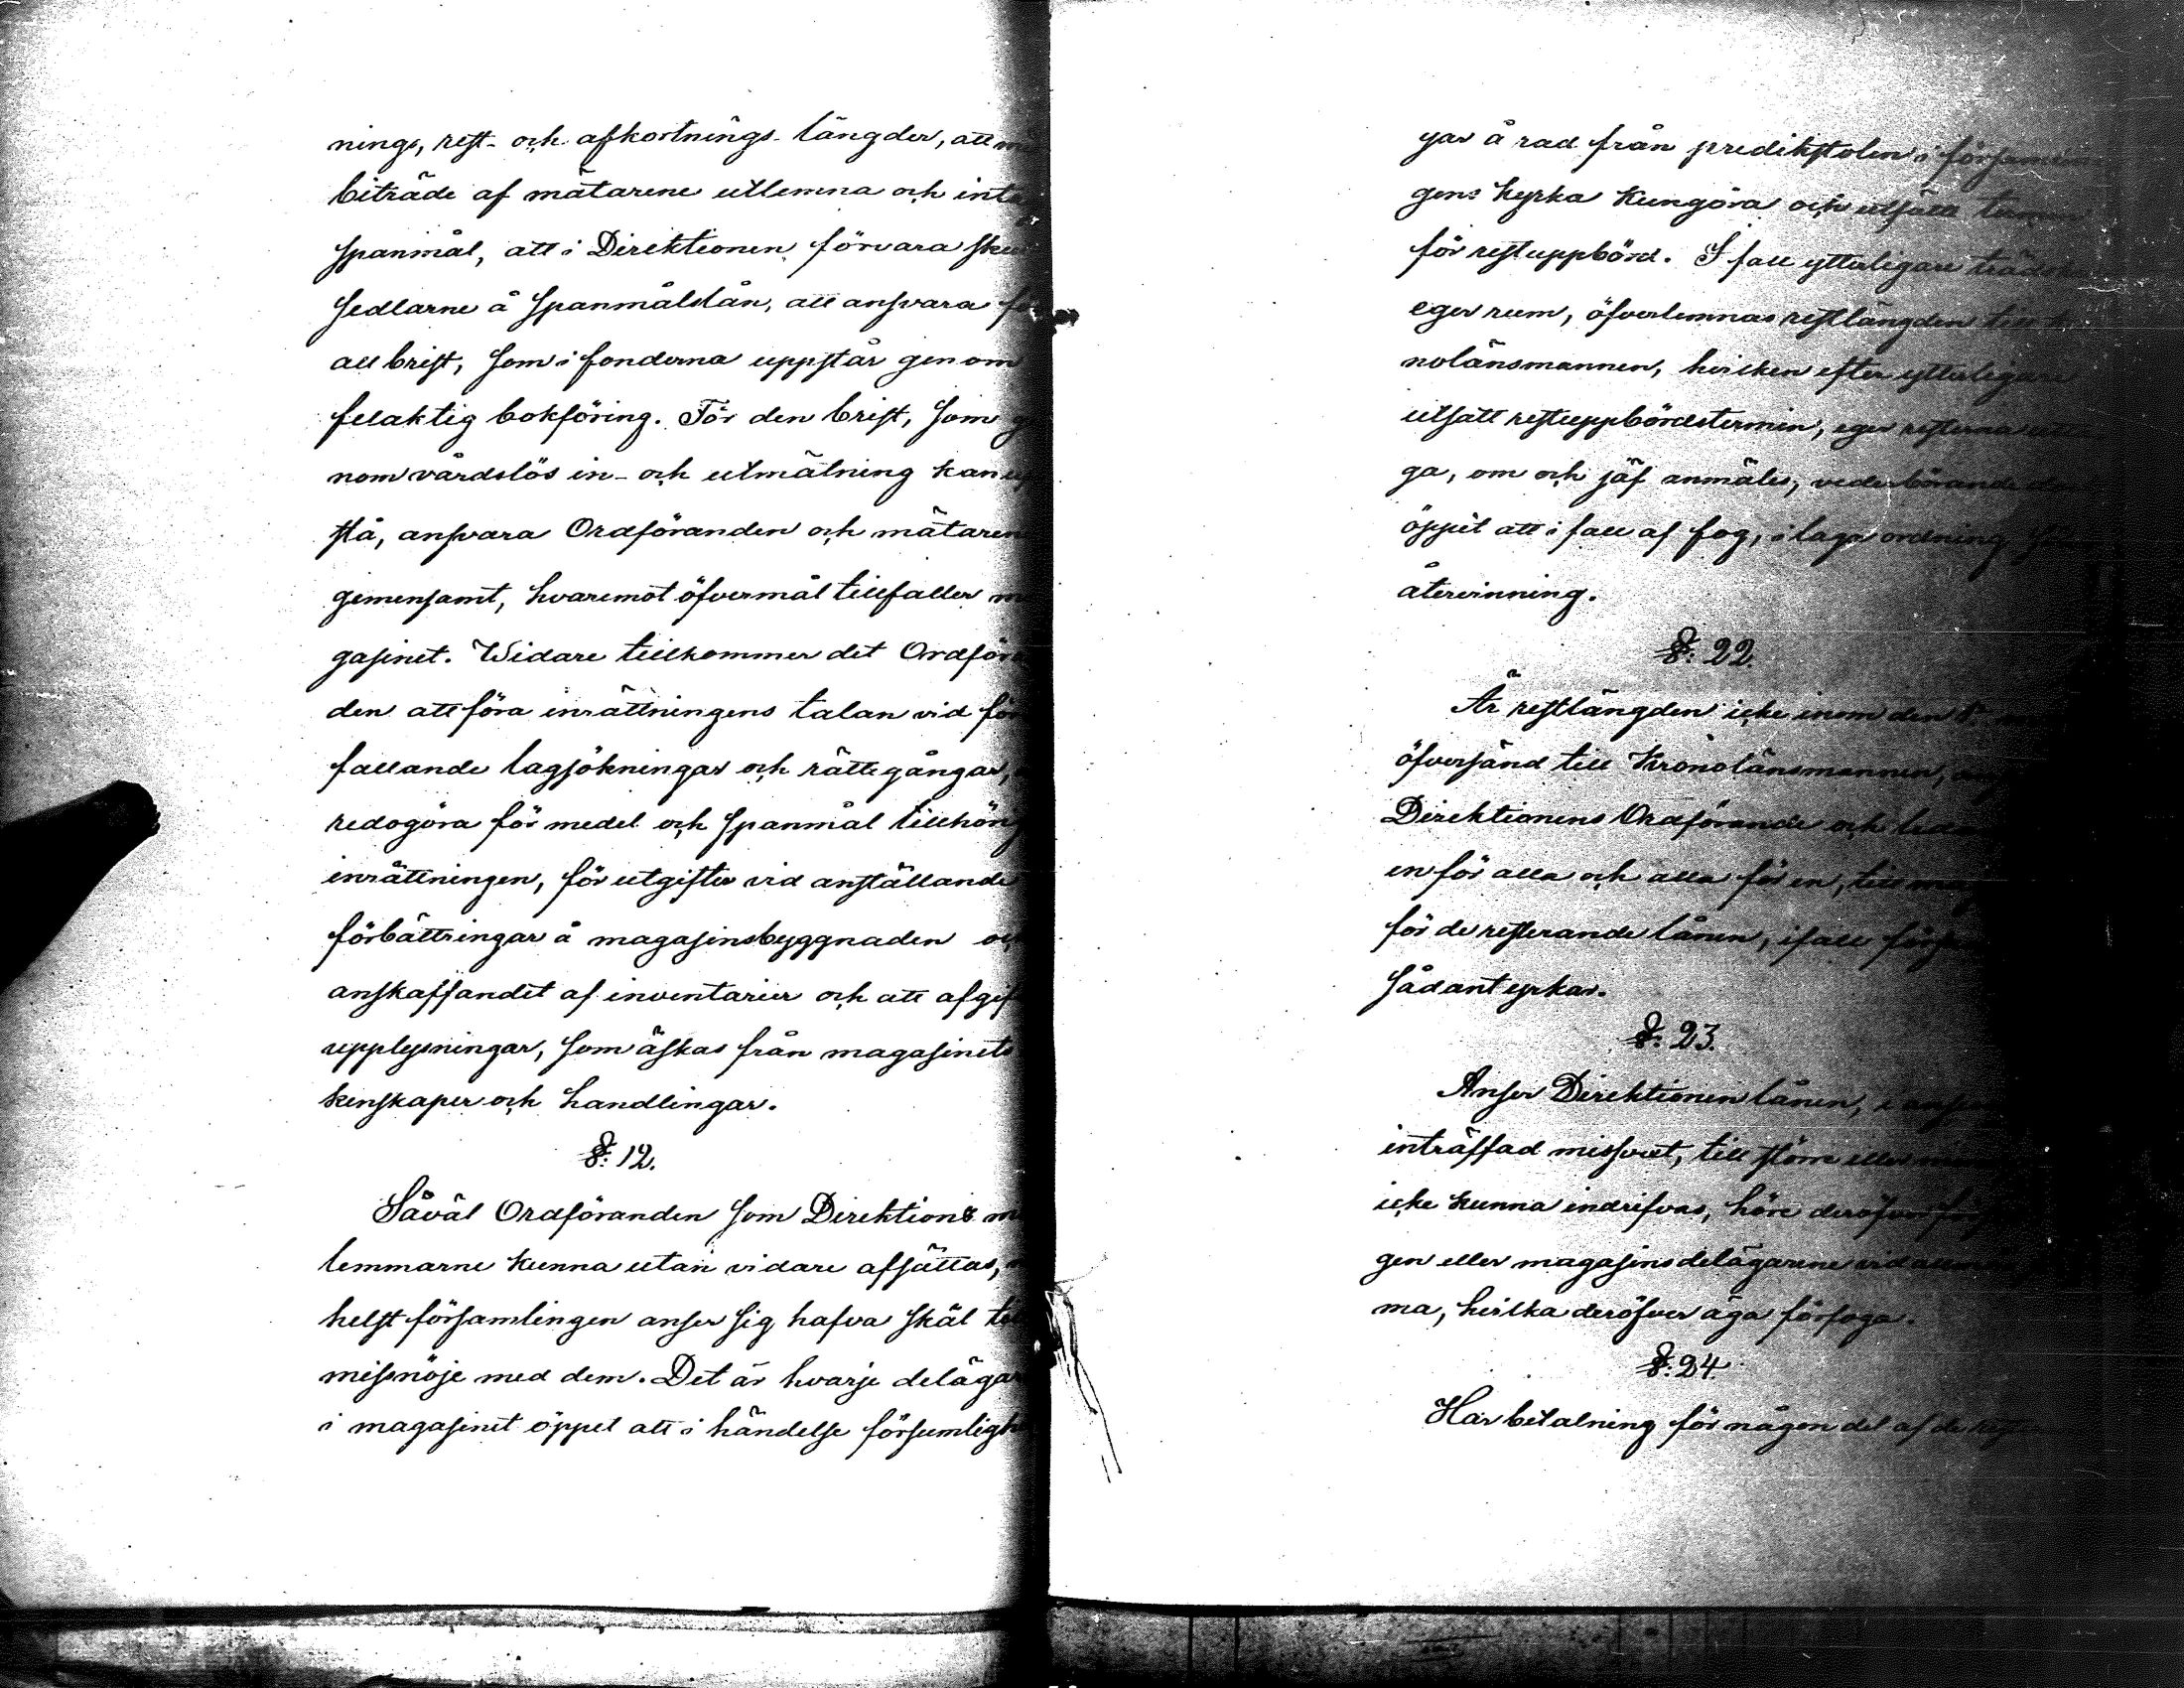 nings, rest- och afkortnings-längder, att
biträde af mätarene utlemna och
spanmål, att i Direktionen förvara
sedlarne å spanmålslån, att ansvara
all brist, som i fonderna uppstår genom
felaktig bokföring. För den brist, som
nom vårdslös in- och utmätning kan
stå, ansvara Ordföranden och mätaren
gemensamt, hvaremot öfvermål tillfaller
gasinet. Widare tillkommer det Ordför
den att föra inrättningens talan vid
fallande lagsökningar och rättegångar,
redogöra för medel och spanmål tillhör
inrättningen, för utgifter vid anställande
förbättringar å magasinsbyggnaden
anskaffandet af inventarier och att afgif
upplysningar, som äskas från magasinets
kenskaper och handlingar.
§: 12.
Såväl Ordföranden som Direktions
lemmarne kunna utan vidare afsättas,
helst församlingen anser sig hafva skäl
missnöje med dem. Det är hvarje delägar
i magasinet öppet att i händelse försumligh
gar å rad från predikstolen i församlin
gens kyrka kungöra och utsätta termin
för restuppbörd. I fall ytterligare tredska
eger rum, öfverlemnas restlängden till
nolänsmannen, hvilken efter ytterligare
utsatt restuppbördstermin, eger resterna
ga, om och jäf anmäles, vederbörande
öppet att i fall af fog, i laga ordning
återvinning.
§: 22.
Är restlängden icke inom den
öfversänd till Kronolänsmannen,
Direktionens Ordförande och
en för alla och alla för en, till
för de resterande lånen, ifall
sådant yrkar.
§: 23.
Anser Direktionen lånen, i
inträffad missvext, till större eller
icke kunna indrifvas, höre deröfver
gen eller magasinsdelägarene vid
ma, hvilka deröfver äga förfoga.
§: 24.
Har betalning för någon del af de